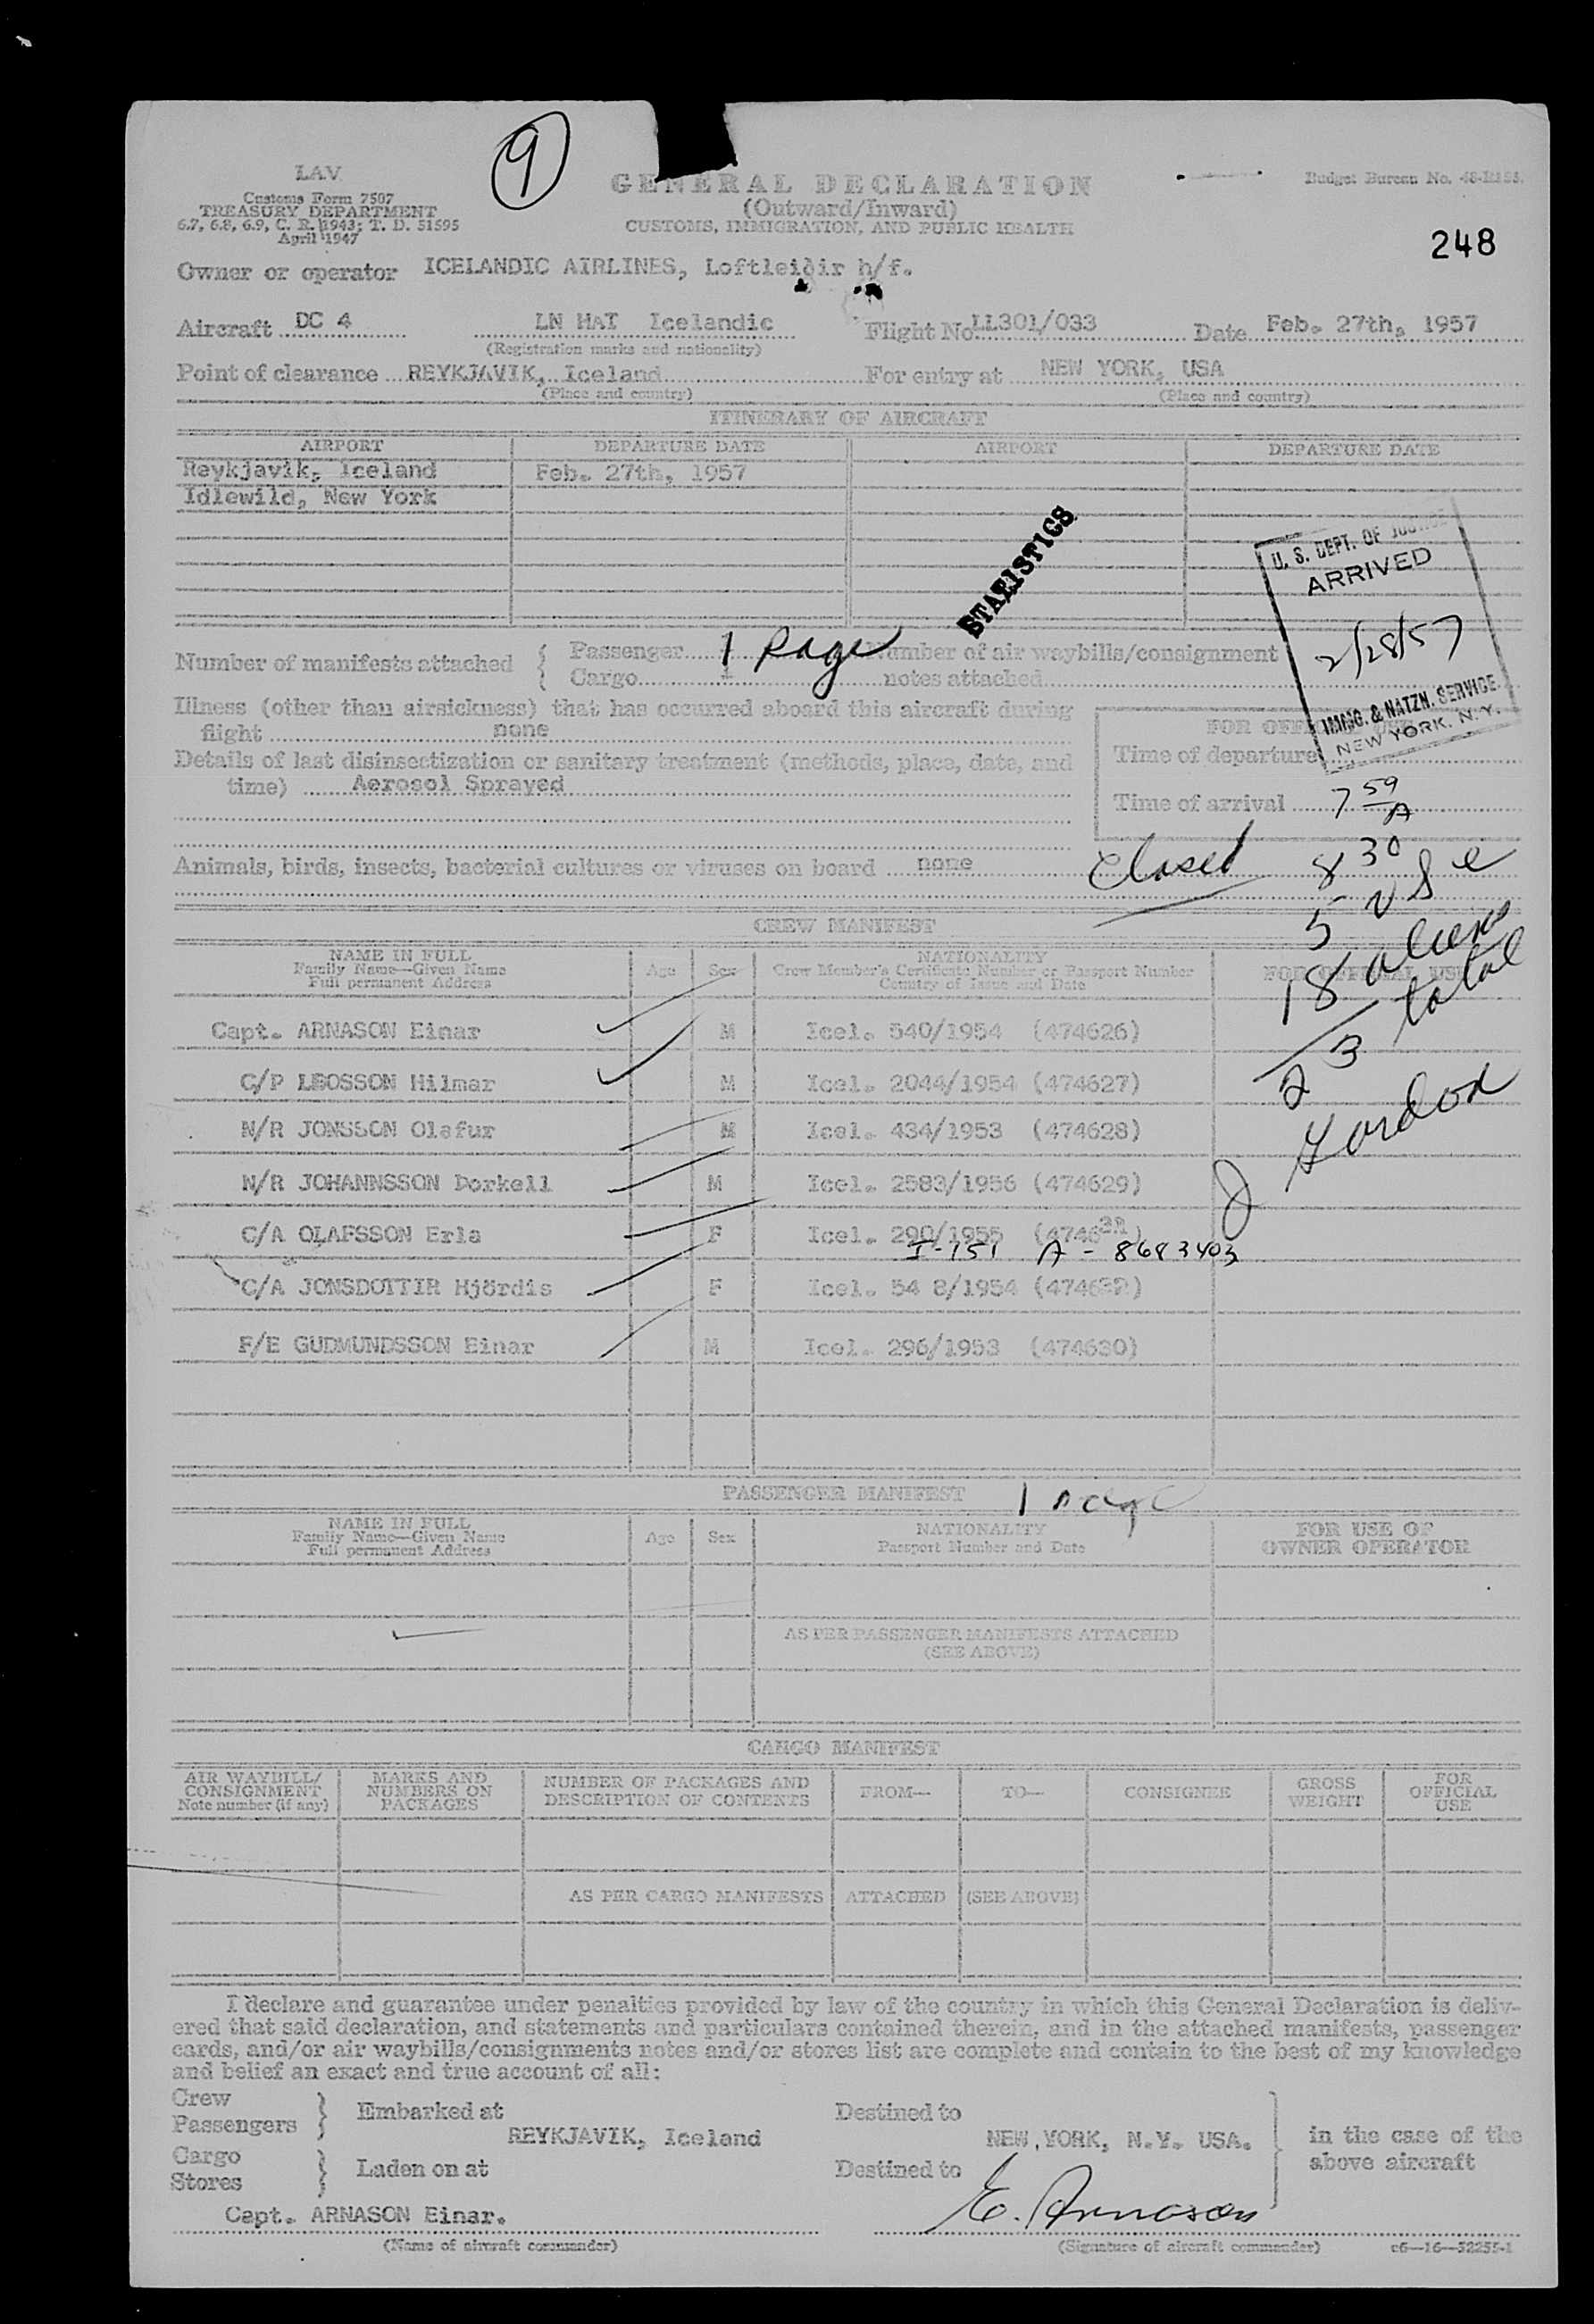 9
LAV
Customs Form 7507
TREASURY DEPARTMENT
6.7, 6.8, 6.9, C. R. 1943; T. D. 51595
April 1947
GENERAL DECLARATION
(Outward/Inward)
CUSTOMS, IMMIGRATION, AND PUBLIC HEALTH
Budget Bureau No.
248
Owner or operator ICELANDIC AIRLINES, Loftleiðir h/f.
Aircraft DC 4 LN HAT Icelandic Flight No. LL301/033 Date Feb. 27th, 1957
(Registration marks and nationality)
Point of clearance REYKJAVIK, Iceland For entry at NEW YORK, USA
(Place and country) (Place and country)
ITINERARY OF AIRCRAFT
AIRPORT DEPARTURE DATE AIRPORT DEPARTURE DATE
Reykjavik, Iceland Feb. 27th, 1957
Idlewild, New York
STATISTICS
U. S. DEPT. OF JUSTICE
ARRIVED
2/28/57
IMMG. & NATZN. SERVICE
NEW YORK, N.Y.
Number of manifests attached { Passenger 1 page Number of air waybills/consignment
Cargo 1 notes attached
Illness (other than airsickness) that has occurred aboard this aircraft during
flight none
FOR OFFICIAL USE
Details of last disinsectization or sanitary treatment (methods, place, date, and
time) Aerosol Sprayed
Time of departure
Time of arrival 7 59 A
Animals, birds, insects, bacterial cultures or viruses on board none
Closed 8 30
5 USC
18 aliens
23 total
J Gordon
CREW MANIFEST
NAME IN FULL
Family Name—Given Name
Full permanent Address
Age Sex
NATIONALITY
Crew Member's Certificate Number or Passport Number
Country of Issue and Date
FOR OFFICIAL USE
Capt. ARNASON Einar M Icel. 540/1954 (474626)
C/P LEOSSON Hilmar M Icel. 2044/1954 (474627)
N/R JONSSON Olafur M Icel. 434/1953 (474628)
N/R JOHANNSSON Dorkell M Icel. 2583/1956 (474629)
C/A OLAFSSON Erla F Icel. 290/1955 (474631)
I-151 A-8683403
C/A JONSDOTTIR Hjördis F Icel. 54 8/1954 (474632)
F/E GUDMUNDSSON Einar M Icel. 296/1953 (474630)
PASSENGER MANIFEST 1 page
NAME IN FULL
Family Name—Given Name
Full permanent Address
Age Sex
NATIONALITY
Passport Number and Date
FOR USE OF
OWNER OPERATOR
AS PER PASSENGER MANIFESTS ATTACHED
(SEE ABOVE)
CARGO MANIFEST
AIR WAYBILL/
CONSIGNMENT
Note number (if any)
MARKS AND
NUMBERS ON
PACKAGES
NUMBER OF PACKAGES AND
DESCRIPTION OF CONTENTS
FROM—
TO—
CONSIGNEE
GROSS
WEIGHT
FOR
OFFICIAL
USE
AS PER CARGO MANIFESTS ATTACHED (SEE ABOVE)
I declare and guarantee under penalties provided by law of the country in which this General Declaration is deliv-
ered that said declaration, and statements and particulars contained therein, and in the attached manifests, passenger
cards, and/or air waybills/consignments notes and/or stores list are complete and contain to the best of my knowledge
and belief an exact and true account of all:
Crew
Passengers } Embarked at REYKJAVIK, Iceland Destined to NEW YORK, N.Y. USA.
Cargo
Stores } Laden on at Destined to
in the case of the
above aircraft
Capt. ARNASON Einar. E. Arnason
(Name of aircraft commander) (Signature of aircraft commander) c6—16—52255-1